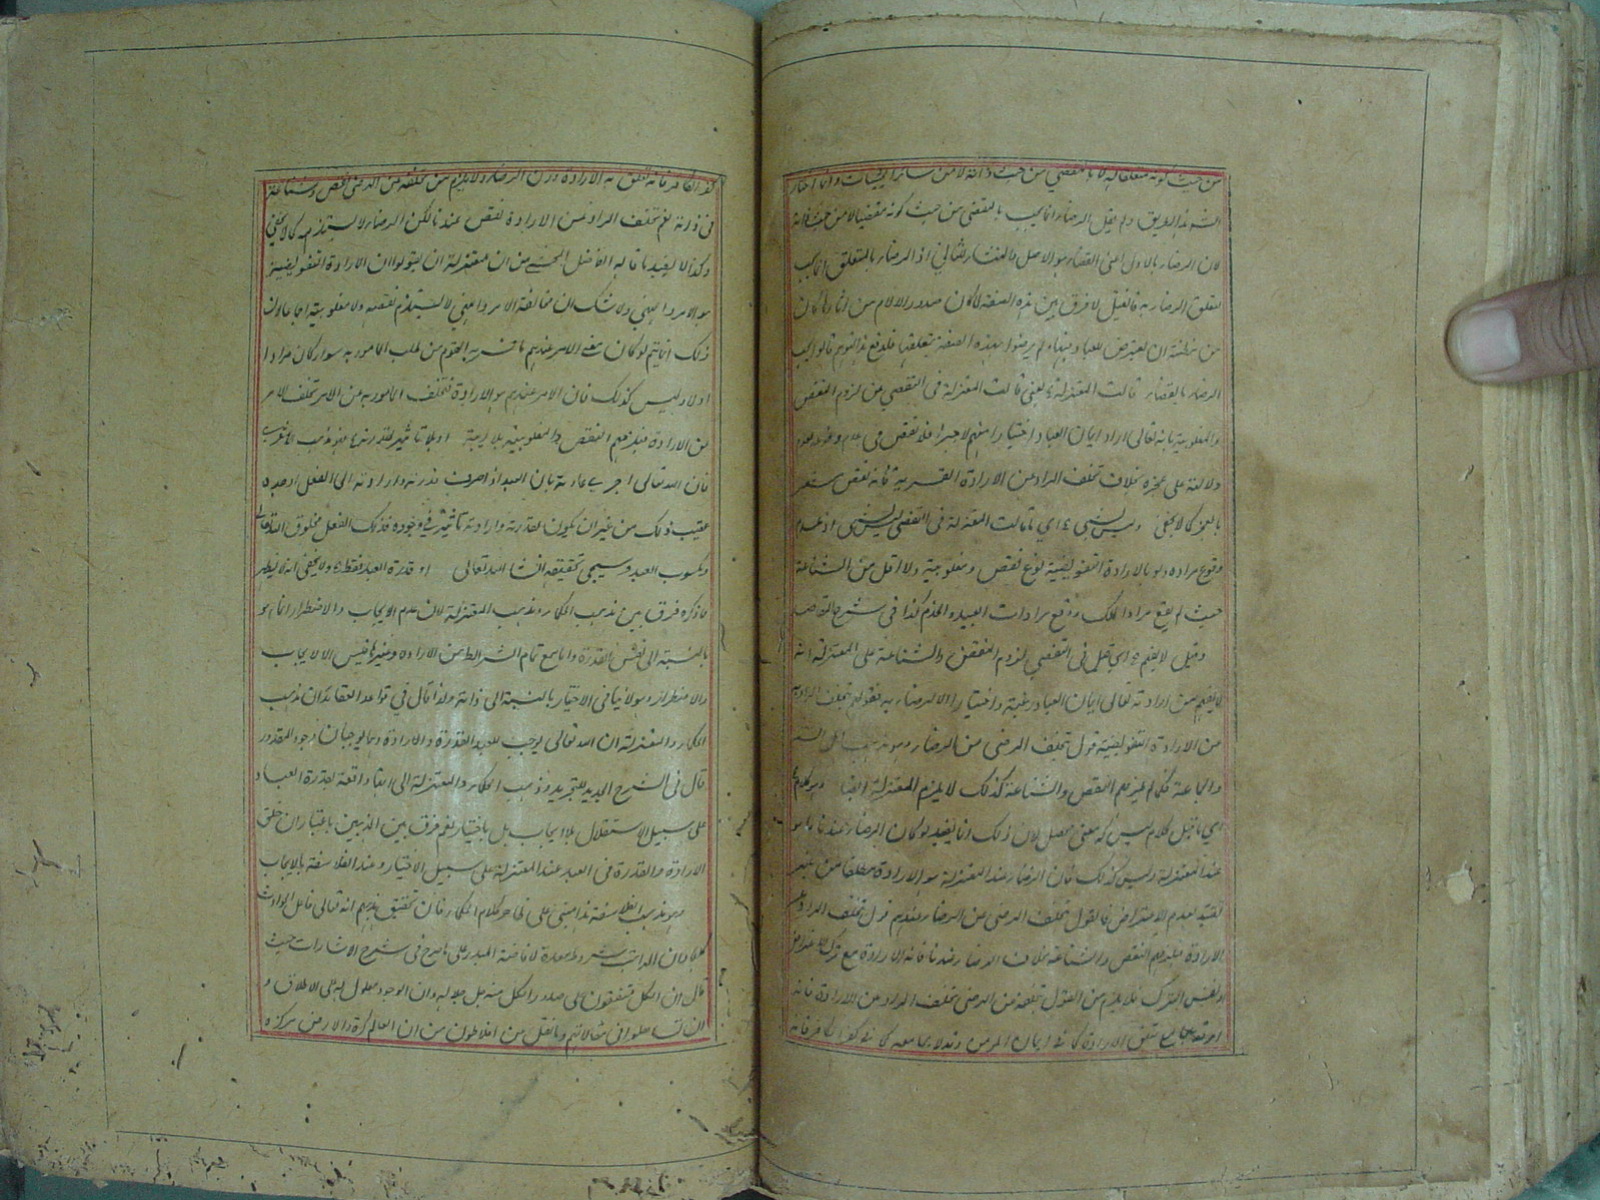 من حيث كونه متعلقا له لا بالمقضي من حيث ذاته لا من سائر الحيثيات وانما اختار
الش هذا الطريق ولم يقل الرضاء انما يجب بالمقضي من حيث كونه مقضيا لا من حيث ذاته
لان الرضاء بالاول اعني القضاء هو الاصل بالمنشأ للثاني اذ الرضاء بالمتعلق انما يجب
لتعلق الرضاء به فالقيل لا فرق بين هذه الصفة لما كان صدور الآلام من آثارها كان
من مظنة ان يعرض للعباد عنها ولم يرضوا بهذه الصفة بتعلقها فلدفع هذا التوهم قالوا يجب
الرضاء بالقضاء قالت المعتزلة يعني قالت المعتزلة في التفصي من لزوم النقص
والمغلوبية بانه تعالى اراد ايمان العباد اختيارا منهم لا جبرا فلا نقص في عدم وقوع مراده
ولا دلالة على عجزه بخلاف تخلف المراد عن الارادة القسرية فانه نقص مستلزم
بالعجز كما لا يخفى وليس بشيء اي ما قالت المعتزلة في التفصي ليس بشيء اذ عدم
وقوع مراده ولو بالارادة التفويضية نوع نقص ومغلوبية ولا اقل من الشناعة
حيث لم يقع مراد الملك ووقع مرادات العبيد والخدم كذا في شرح المقاصد
وقيل لا يفهم اي قيل في التفصي لزوم النقص والشناعة على المعتزلة انه
لا يفهم من ارادته تعالى ايمان العباد رغبة واختيارا الا الرضاء به فقولهم بتخلف المراد
من الارادة التفويضية قول بتخلف المرضي من الرضاء وهو مذهب اهل السنة
والجماعة فكما لم يلزمهم النقص والشناعة كذلك لا يلزم المعتزلة ايضا وهو كلام
اي ما قيل كلام ليس له معنى محصل لان ذلك انما يفيد لو كان الرضاء عندنا ما هو
عند المعتزلة وليس كذلك فان الرضاء عند المعتزلة هو الارادة مطلقا من غير
تقييد بعدم الاعتراض فالقول بتخلف المرضي من الرضاء عندهم قول بتخلف المراد عن
الارادة فيلزمهم النقص والشناعة بخلاف الرضاء عندنا فانه الارادة مع ترك الاعتراض
او نفس الترك فلا يلزم من القول بتخلفه من المرضي تخلف المراد من الارادة فانه
او قد يجامع تعلق الارادة كما في ايمان المؤمن وقد لا يجامعه كما في كفر الكافر فانه
كفر الكافر فانه تعلق به الارادة دون الرضاء ولا يلزم من تخلفه من المرضي نقص وشناعة
في ذاته نعم تخلف المراد من الارادة نقص عندنا لكن الرضاء لا يستلزمه كما لا يخفى
وكذا لا يفيد ما قاله الفاضل المحشي من ان معتزلة ان يقولوا ان الارادة التفويضية
هو الامر والنهي ولا شك ان مخالفة الامر والنهي لا يستلزم نقصه ولا مغلوبيته
ذلك انما يتم لو كان معنى الامر عندهم ما نسب به القوم من طلب المأمور به سواء كان مرادا
اولا وليس كذلك فان الامر عندهم هو الارادة فتخلف المأمور به من الامر تخلف المراد
من الارادة فيلزمهم النقص والمغلوبية بلا ريبة او بلا تأثير لقدرتها هو مذهب الاشعري
فان الله تعالى اجرى عادته بان العبد اذا صرف قدرته وارادته الى الفعل اوجده
عقيب ذلك من غير ان يكون لقدرته وارادته تأثير في وجوده فذلك الفعل مخلوق الله تعالى
ومكسوب العبد وسيجي تحقيقه انشاء الله تعالى او قدرة العبد فقط ولا يخفى انه لا يظهر
مما ذكره فرق بين مذهب الحكماء ومذهب المعتزلة لان عدم الايجاب والاضطرار انما هو
بالنسبة الى نفس القدرة واما مع تمام الشرائط من الارادة وغيرها فليس الا الايجاب
والاضطرار وهو لا ينافي الاختيار بالنسبة الى ذاته ولذا قال في قواعد العقائد ان مذهب
الحكماء والمعتزلة ان الله تعالى يوجب للعبد القدرة والارادة وهما يوجبان وجود المقدور
قال في الشرح الجديد للتجريد وذهب الحكماء والمعتزلة الى انها واقعة بقدرة العباد
على سبيل الاستقلال بلا ايجاب بل باختيار نعم فرق بين المذهبين باعتبار ان خلق
الارادة والقدرة في العبد عند المعتزلة على سبيل الاختيار وعند الفلاسفة بالايجاب
وهو مذهب الفلاسفة هذا مبني على ظاهر كلام الحكماء فان تحقيق مذهبهم انه تعالى فاعل الحوادث
كلها وان المراتب شروط معدة لافاضة المبدء على ما صرح في شرح الاشارات حيث
قال ان الكل متفقون على صدور الكل منه جل جلاله وان الوجود معلول له على الاطلاق و
ان تساهلوا في مقالاتهم وما نقل من افلاطون من ان العالم كرة والارض مركزه